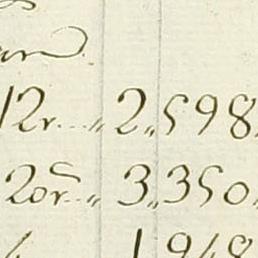 12r. „ 2„598„
20r. „ 3„350„
1 948